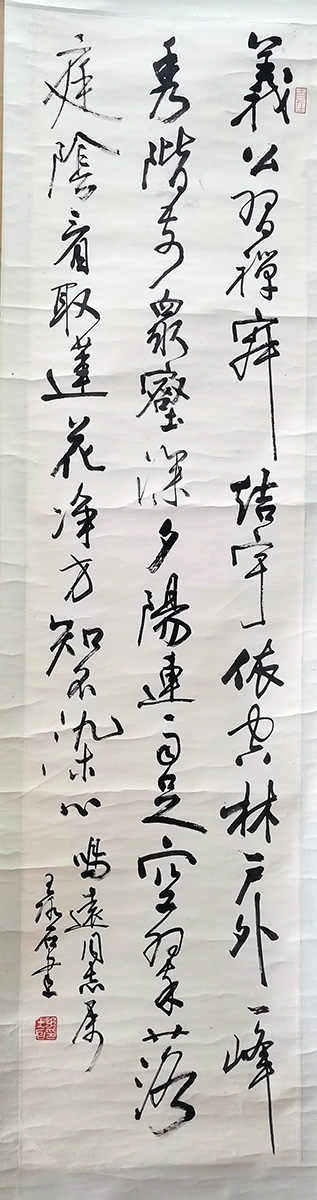 義公習禪寂結宇依空林戶外一峰
秀階前眾壑深夕陽連雨足空翠落
庭陰看取蓮花净方知不染心
鳴遠同志屬
王石書